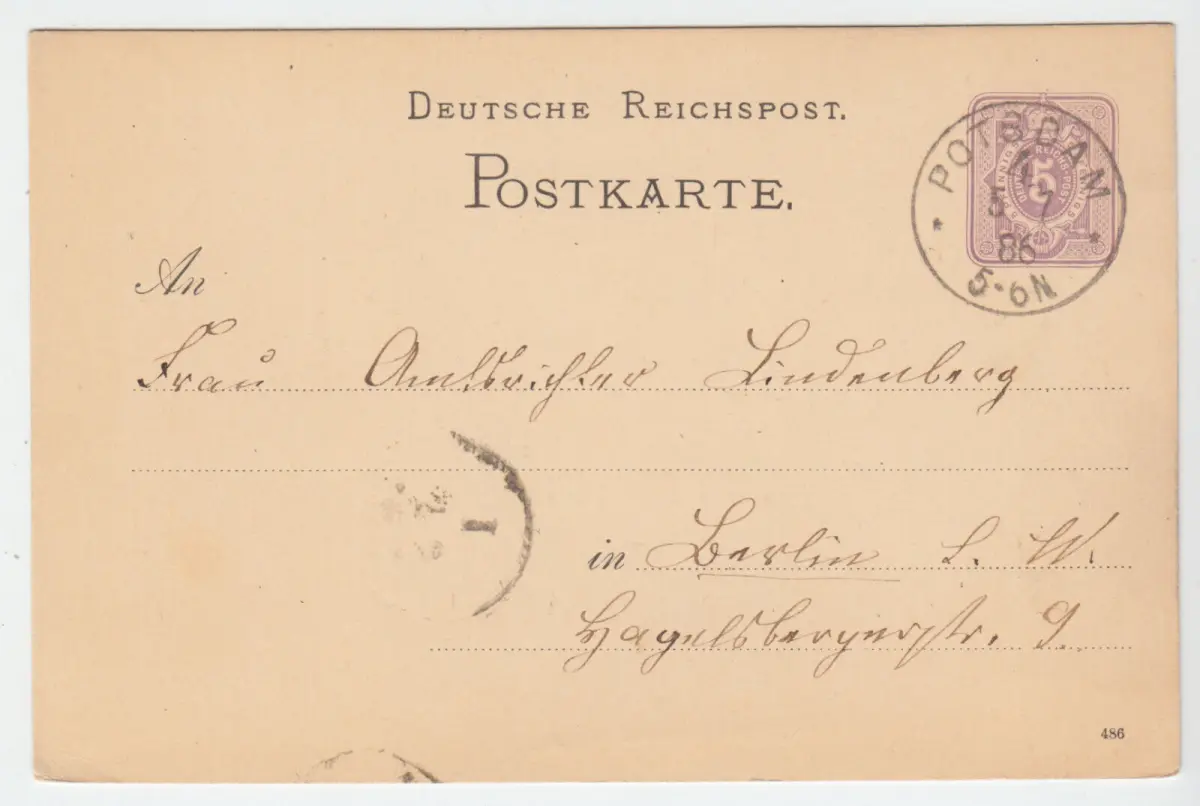 DEUTSCHE REICHSPOST.
POSTKARTE.
POTSDAM
4
5 7
86
5-6N
5
An
Frau Amtsrichter Lindenberg
1
in Berlin S. W.
Hagelsbergerstr. 9.
486